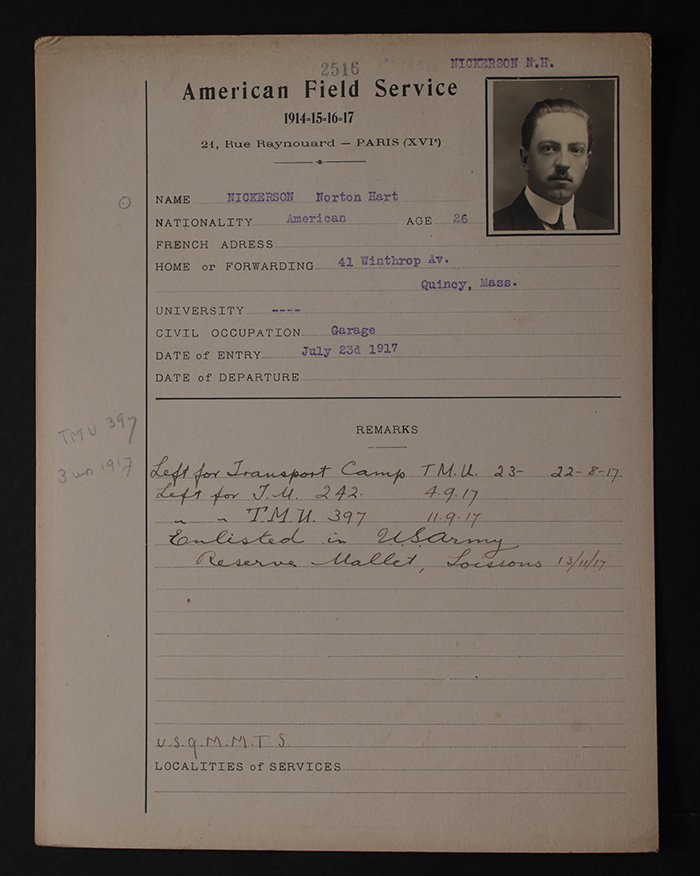 2516
NICKERSON N.H.
American Field Service
1914-15-16-17
21, Rue Raynouard — PARIS (XVIe)
NAME NICKERSON Norton Hart
NATIONALITY American AGE 26
FRENCH ADRESS
HOME or FORWARDING 41 Winthrop Av.
Quincy, Mass.
UNIVERSITY ----
CIVIL OCCUPATION Garage
DATE of ENTRY July 23d 1917
DATE of DEPARTURE
REMARKS
TMU 397
3 mo 1917
Left for Transport Camp T.M.U. 23- 22-8-17
Left for T.M. 242. 4.9.17
" " T.M.U. 397 11.9.17
Enlisted in U.S. Army
Reserve Mallet, Soissons 13/11/17
U.S.Q.M.M.T.S.
LOCALITIES of SERVICES